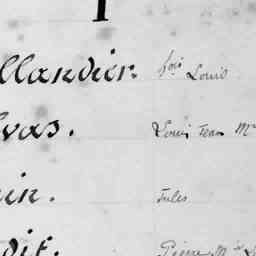 llandier. fois Louis
vas. Louis Jean M
in. Jules
dit. Pierre M